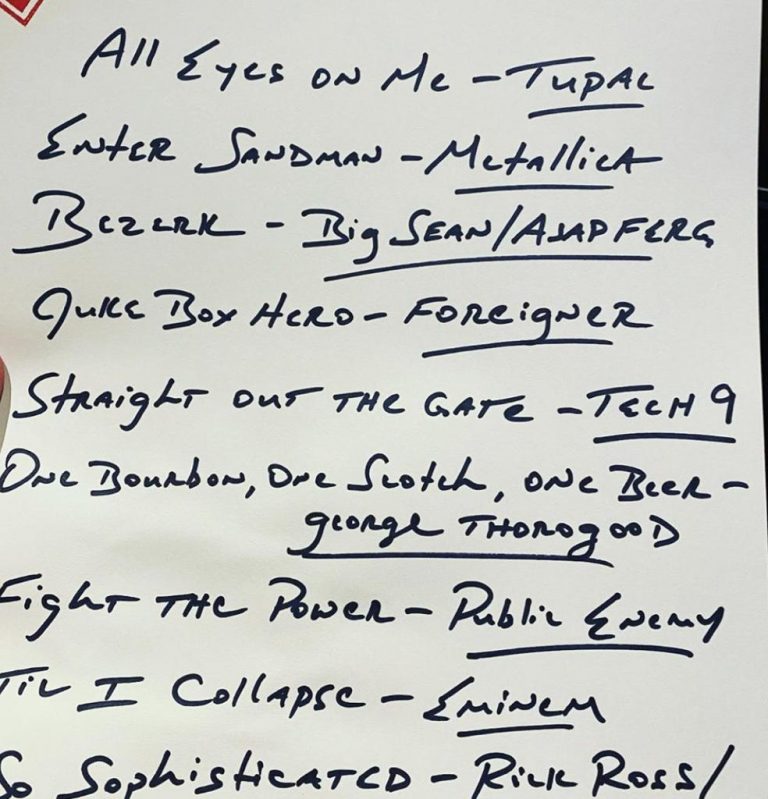 All Eyes on Me - Tupac
Enter Sandman - Metallica
Bezerk - Big Sean/ASAP Ferg
Juke Box Hero - Foreigner
Straight out the Gate - Tech 9
One Bourbon, One Scotch, one Beer -
george Thorogood
Fight the Power - Public Enemy
Til I Collapse - Eminem
So Sophisticated - Rick Ross/